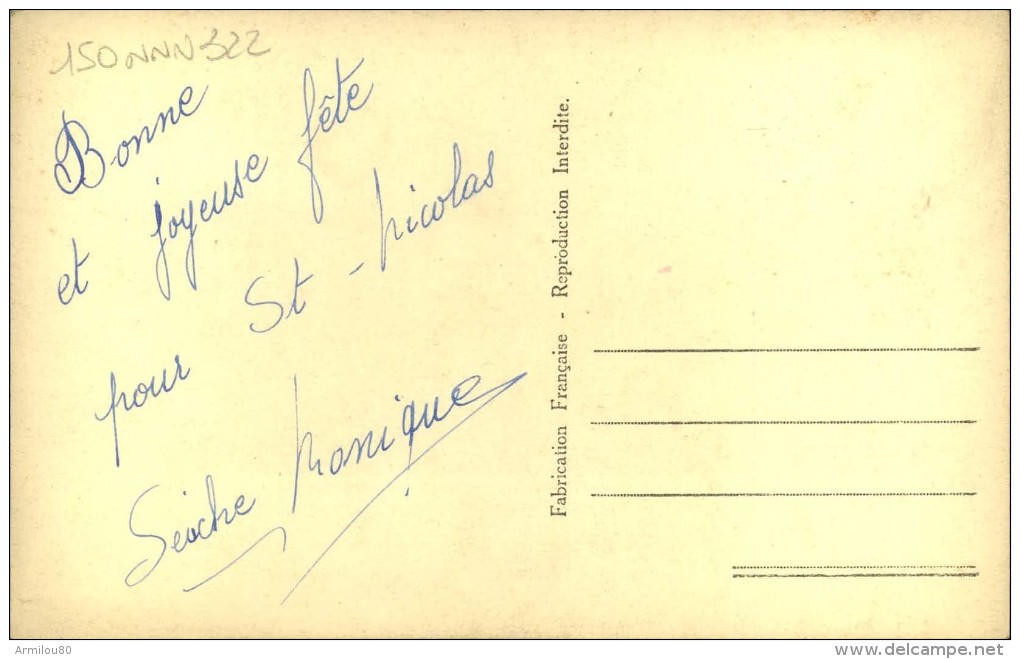 150NNN322
Bonne
et joyeuse fête
pour St - Nicolas
Monique
Fabrication Française - Reproduction Interdite.
Armilou80
www.delcampe.net